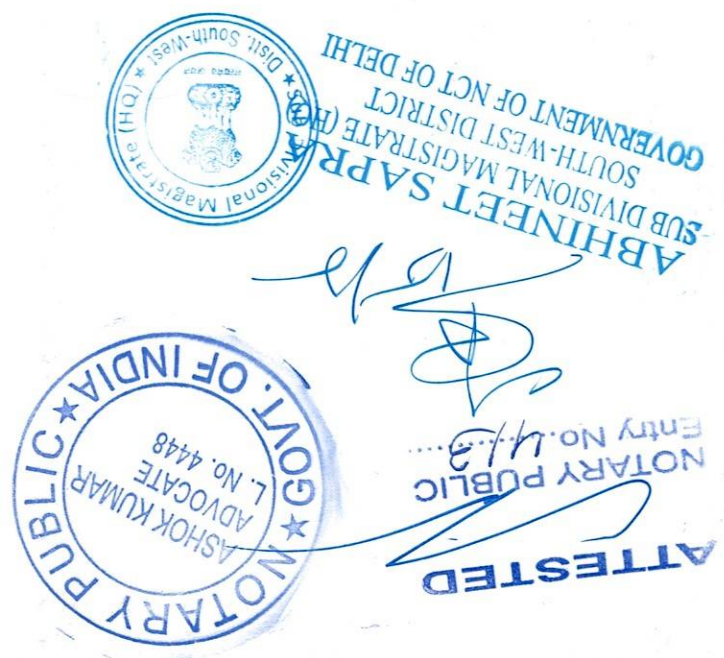 ATTESTED
NOTARY PUBLIC
Entry No. 413
NOTARY PUBLIC ★ GOVT. OF INDIA ★
ASHOK KUMAR
ADVOCATE
L. No. 4448
ABHINEET SAPRA
SUB DIVISIONAL MAGISTRATE (HQ)
SOUTH-WEST DISTRICT
GOVERNMENT OF NCT OF DELHI
Divisional Magistrate (HQ) ★ Distt. South-West ★